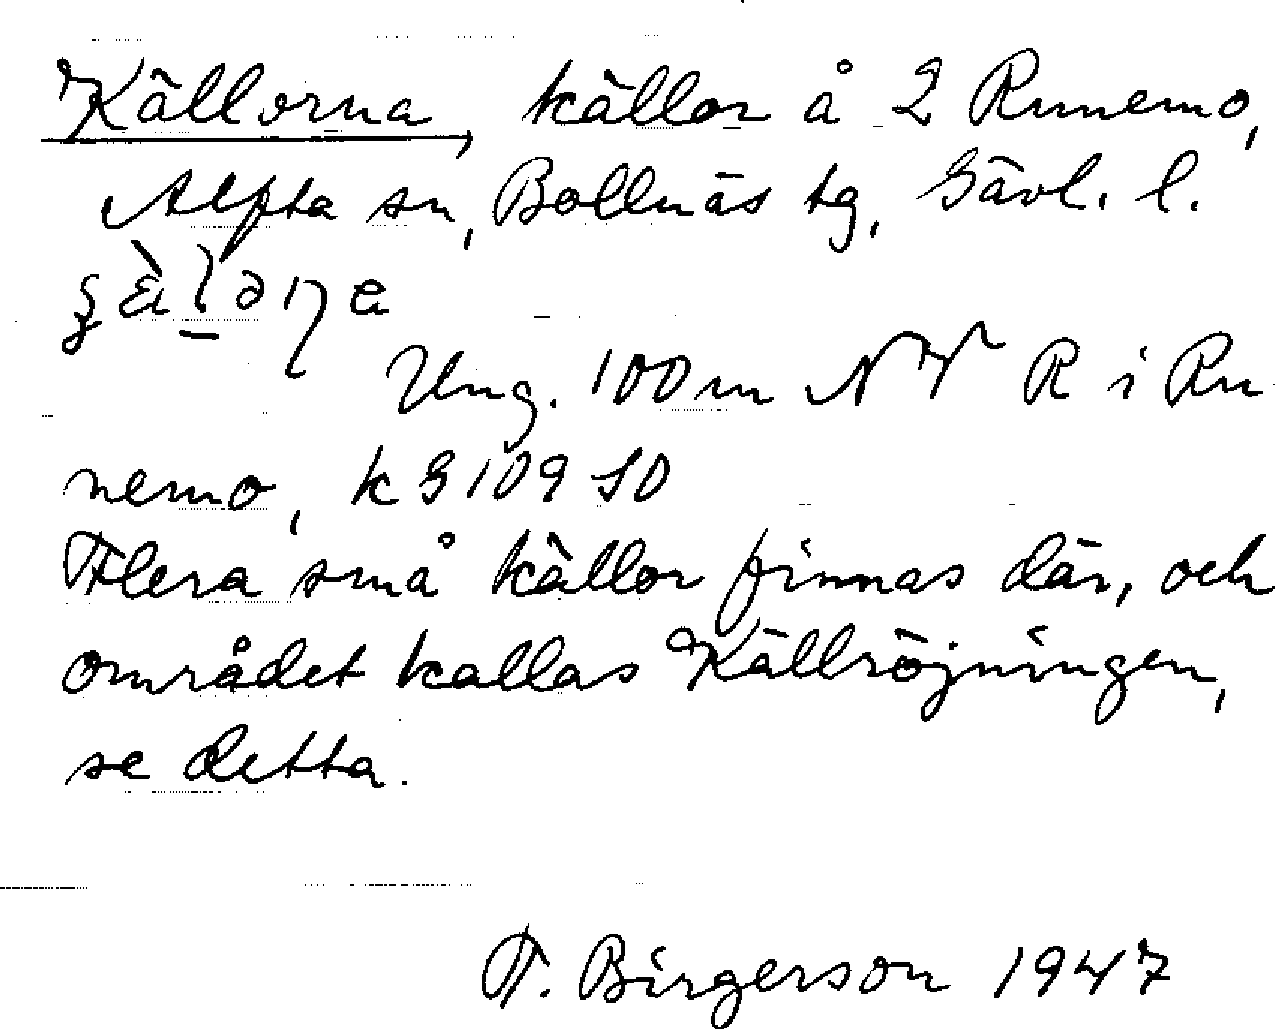 Källorna, källor å 2 Runemo,
Alfta sn, Bollnäs tg, Gävl. l.
Ung. 100 m NV R i Ru
nemo, k G 109 SO
Flera små källor finnas där, och
området kallas Källröjningen,
se detta.
F. Birgerson 1947